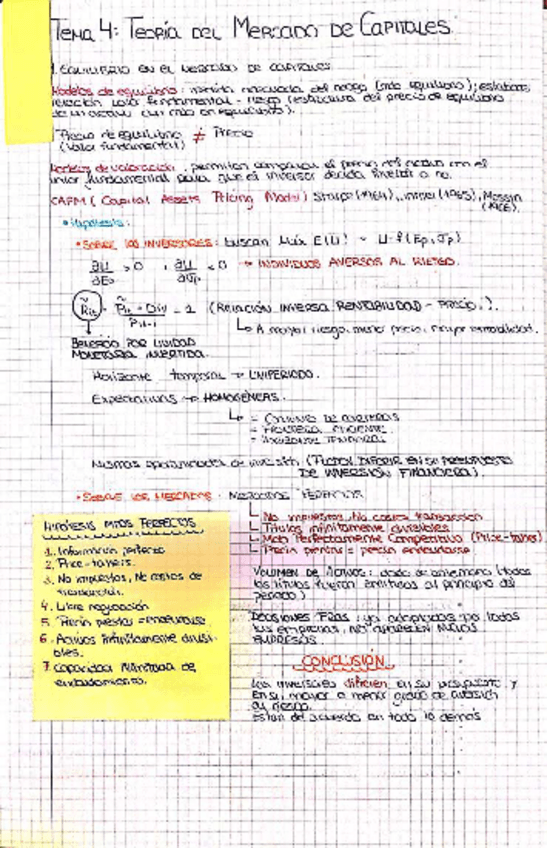 TEMA 4: TEORÍA DEL MERCADO DE CAPITALES
1. EQUILIBRIO EN EL MERCADO DE CAPITALES
Modelos de equilibrio: medida adecuada del riesgo (más equilibrio); establecer
relación valor fundamental - riesgo (estructura del precio de equilibrio
Precio de equilibrio ≠ Precio
(valor fundamental)
Modelos de valoración: permiten comparar el precio del activo con el
valor fundamental para que el inversor decida invertir o no.
CAPM (Capital Assets Pricing Model) Sharpe (1964), Lintner (1965), Mossin
(1966).
• Hipótesis:
• SOBRE LOS INVERSORES: buscan Máx E(U) - U=f(Ep, σp)
∂U/∂Ep > 0, ∂U/∂σp < 0 → INDIVIDUOS AVERSOS AL RIESGO.
R̃it = P̃it + Div / Pit-1 - 1 (RELACIÓN INVERSA RENTABILIDAD - PRECIO).
↳ A mayor riesgo, menor precio, mayor rentabilidad.
BENEFICIO POR UNIDAD
MONETARIA INVERTIDA.
Horizonte temporal → UNIPERIODO.
Expectativas → HOMOGÉNEAS.
↳ = CONJUNTO DE CARTERAS
= FRONTERA EFICIENTE
= HORIZONTE TEMPORAL
Mismas oportunidades de inversión (PUEDEN DIFERIR EN SU PRESUPUESTO
DE INVERSIÓN FINANCIERA).
• SOBRE LOS MERCADOS: MERCADOS PERFECTOS
↳ No impuestos, No costes transacción
↳ Títulos infinitamente divisibles
↳ Mdo Perfectamente Competitivo (Price-takers)
↳ Precio prestar = precio endeudarse
HIPÓTESIS MDOS PERFECTOS
1. Información perfecta
2. Price-takers.
3. No impuestos, No costes de
transacción.
4. Libre negociación
5. Precio prestar = endeudarse
6. Activos infinitamente divisi-
bles.
7. Capacidad ilimitada de
endeudamiento.
VOLUMEN DE ACTIVOS: dado de antemano (todos
los títulos fueron emitidos al principio del
periodo)
DECISIONES FIJAS: ya adoptadas por todas
las empresas, NO APARECEN NUEVAS
EMPRESAS
CONCLUSIÓN
Los inversores difieren en su presupuesto y
en su mayor o menor grado de aversión
al riesgo.
Están de acuerdo en todo lo demás